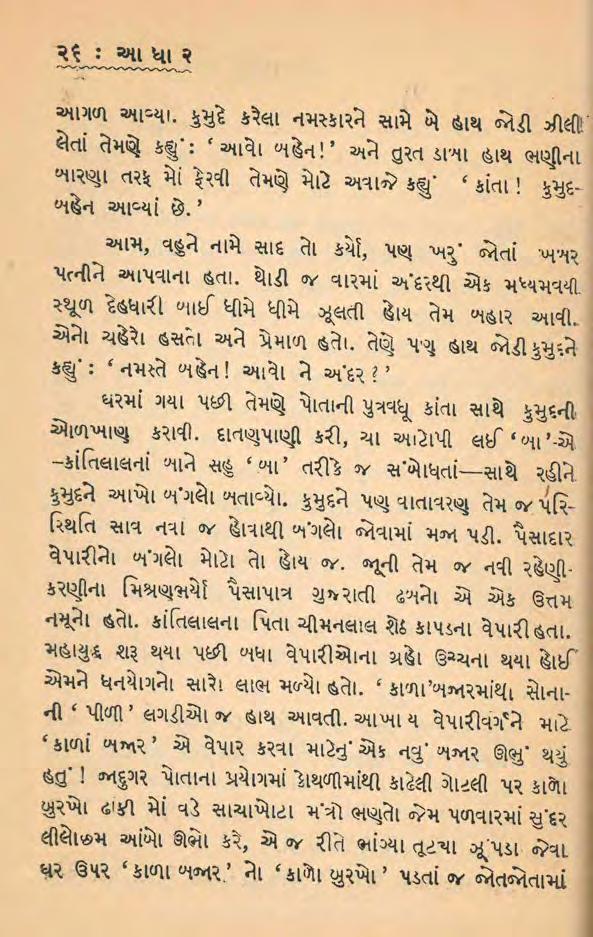 ૨૬ : આ ધા ર
આગળ આવ્યા. કુમુદે કરેલા નમસ્કારને સામે બે હાથ જોડી ઝીલી
લેતાં તેમણે કહ્યું : ‘ આવો બહેન! ’ અને તુરત ડાબા હાથ ભણીના
બારણા તરફ મોં ફેરવી તેમણે મોટે અવાજે કહ્યું ‘ કાંતા ! કુમુદ-
બહેન આવ્યાં છે. ’
આમ, વહુને નામે સાદ તો કર્યો, પણ ખરું જોતાં ખબર
પત્નીને આપવાના હતા. થોડી જ વારમાં અંદરથી એક મધ્યમવયી
સ્થૂળ દેહધારી બાઈ ધીમે ધીમે ઝૂલતી હોય તેમ બહાર આવી.
એનો ચહેરો હસતો અને પ્રેમાળ હતો. તેણે પણ હાથ જોડી કુમુદને
કહ્યું : ‘ નમસ્તે બહેન! આવો ને અંદર ? ’
ઘરમાં ગયા પછી તેમણે પોતાની પુત્રવધૂ કાંતા સાથે કુમુદની
ઓળખાણ કરાવી. દાતણપાણી કરી, ચા આટોપી લઈ ‘ બા ’-એ
–કાંતિલાલનાં બાને સહુ ‘ બા ’ તરીકે જ સંબોધતાં—સાથે રહીને
કુમુદને આખો બંગલો બતાવ્યો. કુમુદને પણ વાતાવરણ તેમ જ પરિ-
સ્થિતિ સાવ નવાં જ હોવાથી બંગલો જોવામાં મજા પડી. પૈસાદાર
વેપારીનો બંગલો મોટો તો હોય જ. જૂની તેમ જ નવી રહેણી-
કરણીના મિશ્રણભર્યો પૈસાપાત્ર ગુજરાતી ઢબનો એ એક ઉત્તમ
નમૂનો હતો. કાંતિલાલના પિતા ચીમનલાલ શેઠ કાપડના વેપારી હતા.
મહાયુદ્ધ શરૂ થયા પછી બધા વેપારીઓના ગ્રહો ઉચ્ચના થયા હોઈ
એમને ધનયોગનો સારો લાભ મળ્યો હતો. ‘ કાળા’બજારમાંથી સોના-
ની ‘ પીળી ’ લગડીઓ જ હાથ આવતી. આખા ય વેપારીવર્ગને માટે
‘ કાળાં બજાર ’ એ વેપાર કરવા માટેનું એક નવું બજાર ઊભું થયું
હતું ! જાદુગર પોતાના પ્રયોગમાં કોથળીમાંથી કાઢેલી ગોટલી પર કાળો
બુરખો ઢાંકી મોં વડે સાચાખોટા મંત્રો ભણતો જેમ પળવારમાં સુંદર
લીલોછમ આંબો ઊભો કરે, એ જ રીતે ભાંગ્યા તૂટ્યા ઝૂંપડા જેવા
ઘર ઉપર ‘ કાળા બજાર ’ નો ‘ કાળો બુરખો ’ પડતાં જ જોતજોતામાં